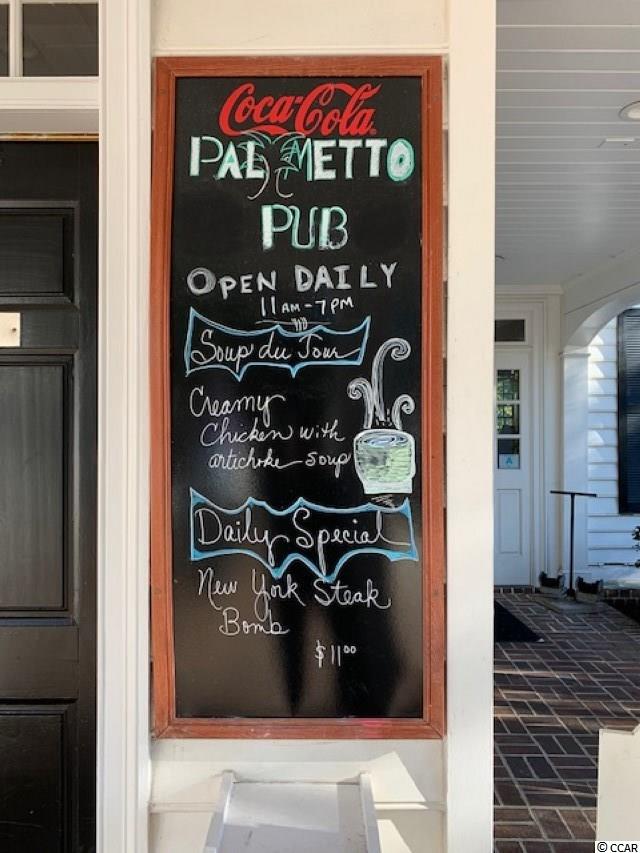 Coca-Cola
PALMETTO
PUB
OPEN DAILY
11AM-7PM
Soup du Jour
Creamy
Chicken with
artichoke soup
Daily Special
New York Steak
Bomb
$11.00
© CCAR